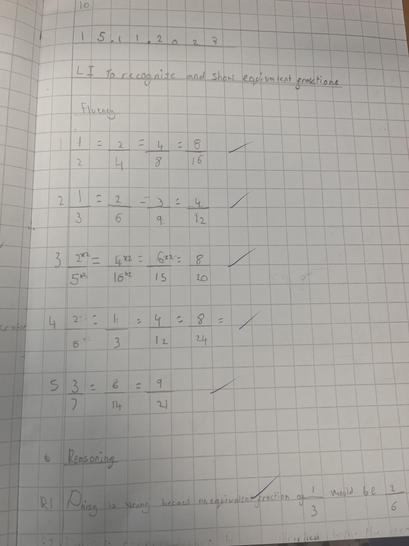 10
15.11.2023
LI To recognise and show equivalent fractions
Fluency
1 1/2 = 2/4 = 4/8 = 8/16
2 1/3 = 2/6 = 3/9 = 4/12
3 2x2/5x2 = 4x2/10x2 = 6x2/15 = 8/20
4 2/6 = 1/3 = 4/12 = 8/24 =
5 3/7 = 6/14 = 9/21
Reasoning
R1 is wrong because equivalent fraction of 1/3 would be 2/6